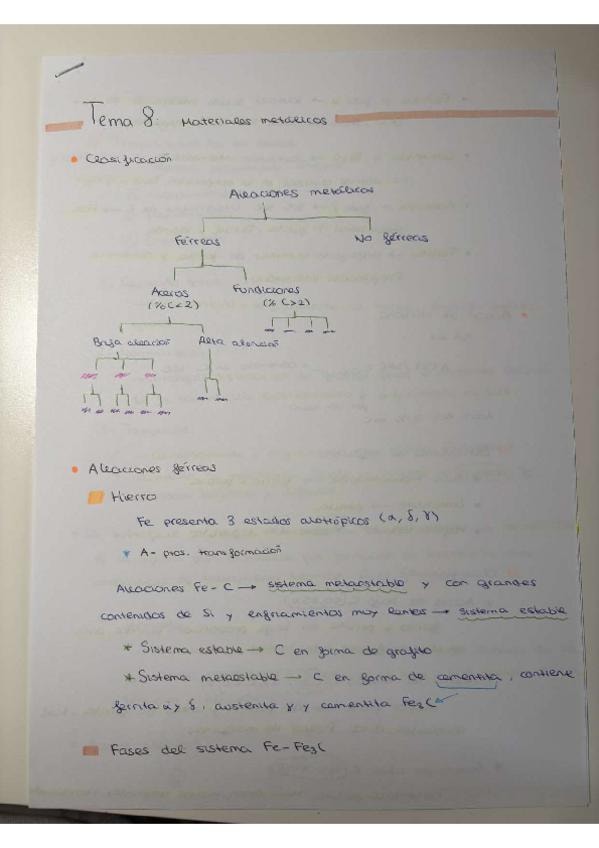 Tema 8. Materiales metálicos
Clasificación
Aleaciones metálicas
Férreas No férreas
Aceros Fundiciones
(% C < 2) (% C > 2)
Baja aleación Alta aleación
Aleaciones férreas
Hierro
Fe presenta 3 estados alotrópicos (α, δ, γ)
A- transformación
Aleaciones Fe-C → sistema metaestable y con grandes
contenidos de Si y enfriamientos muy lentos → sistema estable
* Sistema estable → C en forma de grafito
* Sistema metaestable → C en forma de cementita, contiene
ferrita α y δ, austenita γ y cementita Fe3C
Fases del sistema Fe-Fe3C